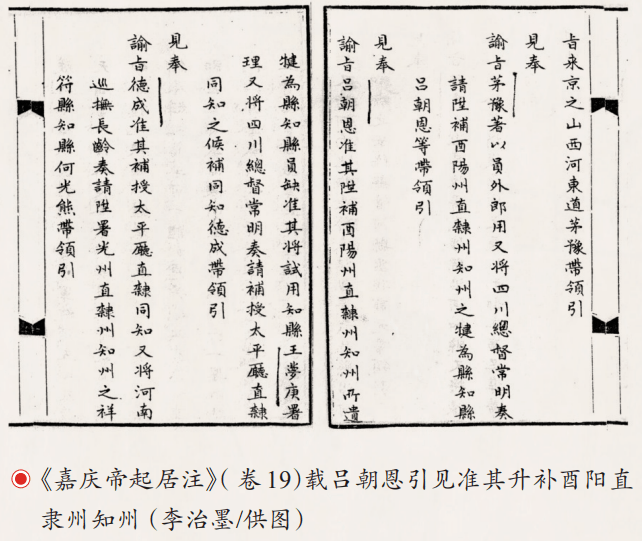 旨来京之山西河東道茅豫帶領引
見奉
諭旨茅豫著以員外郎用又將四川總督常明奏
請陞補酉陽州直隸州知州之犍為縣知縣
吕朝恩等帶領引
見奉
諭旨吕朝恩准其陞補酉陽州直隸州知州所遺
犍為縣知縣員缺准其將試用知縣王夢庚署
理又将四川總督常明奏請補授太平廳直隸
同知之候補同知德成帶領引
見奉
諭旨德成准其補授太平廳直隸同知又将河南
巡撫長齡奏請陞署光州直隸州知州之祥
符縣知縣何光熊帶領引
《嘉庆帝起居注》(卷19)载吕朝恩引见准其升补酉阳直
隶州知州(李治墨/供图)